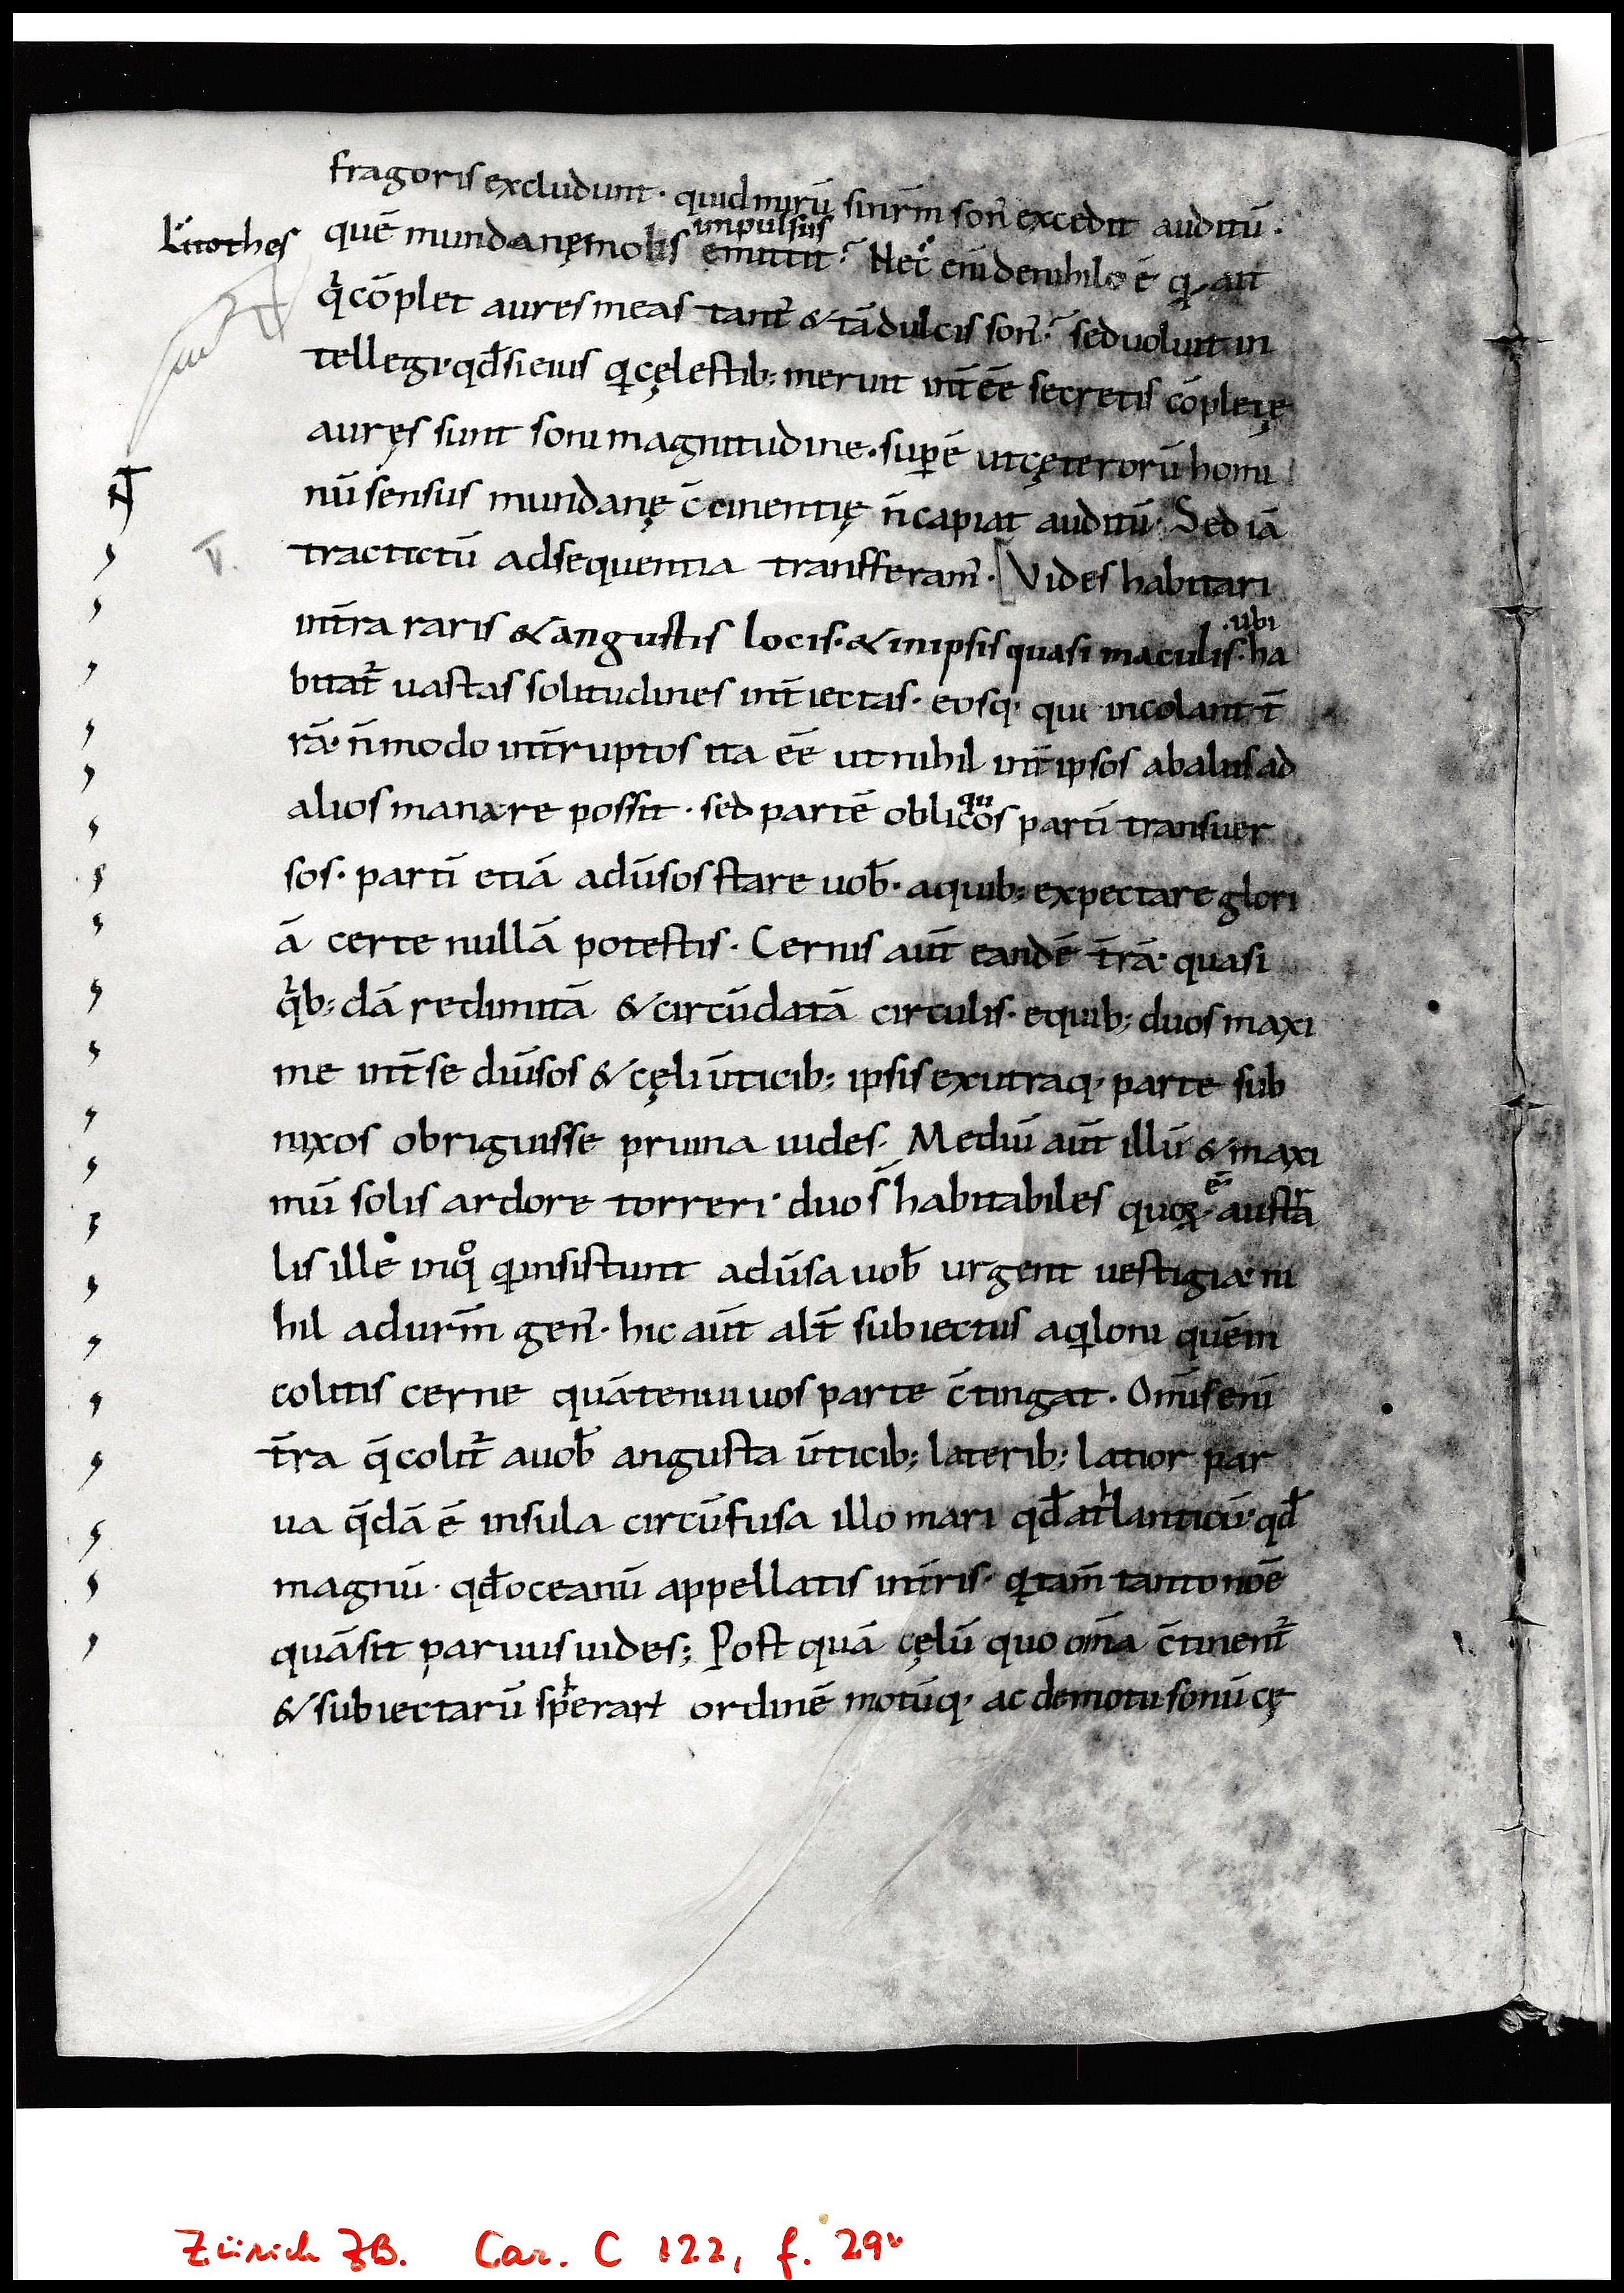 fragoris excludunt · quid mirũ si nr̃m son᷒ excedit auditũ ·
Litothes
impulsus
quẽ mundanę molis emittit? Nec̊ eni᷑ de nihilo ẽ qͥ ait
qͥs cõplet aures meas tant᷒ & tã dulcis son᷒? sed uoluit in
tellegi· qd̃ si eius qͥ cęlestib; meruit int̃ ẽe secretis cõpletę
auręs sunt soni magnitudine · sup̃ẽ ut cęterorũ homi
nũ sensus mundanę c̃cinentię ñ capiat auditũ· Sed iã
V.
tractictũ ad sequentia transferam᷒ · [Vides habitari
ubi
in t̃ra raris & angustis locis · & in ipsis quasi maculis · ha
bitat᷑ uastas solitudines int̃iectas · eosq· qui incolant t̃
rã· ñ modo int̃ruptos ita ẽe ut nihil int̃ ipsos ab aliis ad
qu
alios manare possit · sed partẽ oblicos parti᷑ transuer
sos · parti᷑ etiã adũsos stare uob̃ · a quib; expectare glori
ã certe nullã potestis · Cernis aut̃ eandẽ t̃rã· quasi
qͥb;dã redimitã & circũdatã circulis · e quib; duos maxi
me int̃ se diũsos & cęli ũticib; ipsis ex utraq· parte sub
nixos obriguisse pruina uides · Mediũ aut̃ illũ & maxi
ẽ
mũ solis ardore torreri · duo s̃ habitabiles quoꝝ· austra
lis ille in qͦ qͥ insistunt adũsa uob̃ urgent uestigia· ni
hil ad ur̃m gen᷒ · hic aut̃ alt̃ subiectus aqͥloni quẽ in
colitis cerne quã tenui uos parte c̃tingat · Om̃is eni᷑
t̃ra q̃ colit᷑ a uob̃ angusta ũticib; laterib; latior par
ua q̃dã ẽ insula circũfusa illo mari qd̃ atlanticũ· qd̃
magnũ · qd̃ oceanũ appellatis in t̃ris · qͥ tam̃ tanto noẽ
quã sit paruus uides; Post quã cęlũ quo om̃a c̃tinent᷑
& subiectarũ sp̃erarꝫ ordinẽ motũq· ac de motu sonũ cę
Zürich ZB. Car. C 122, f. 29v